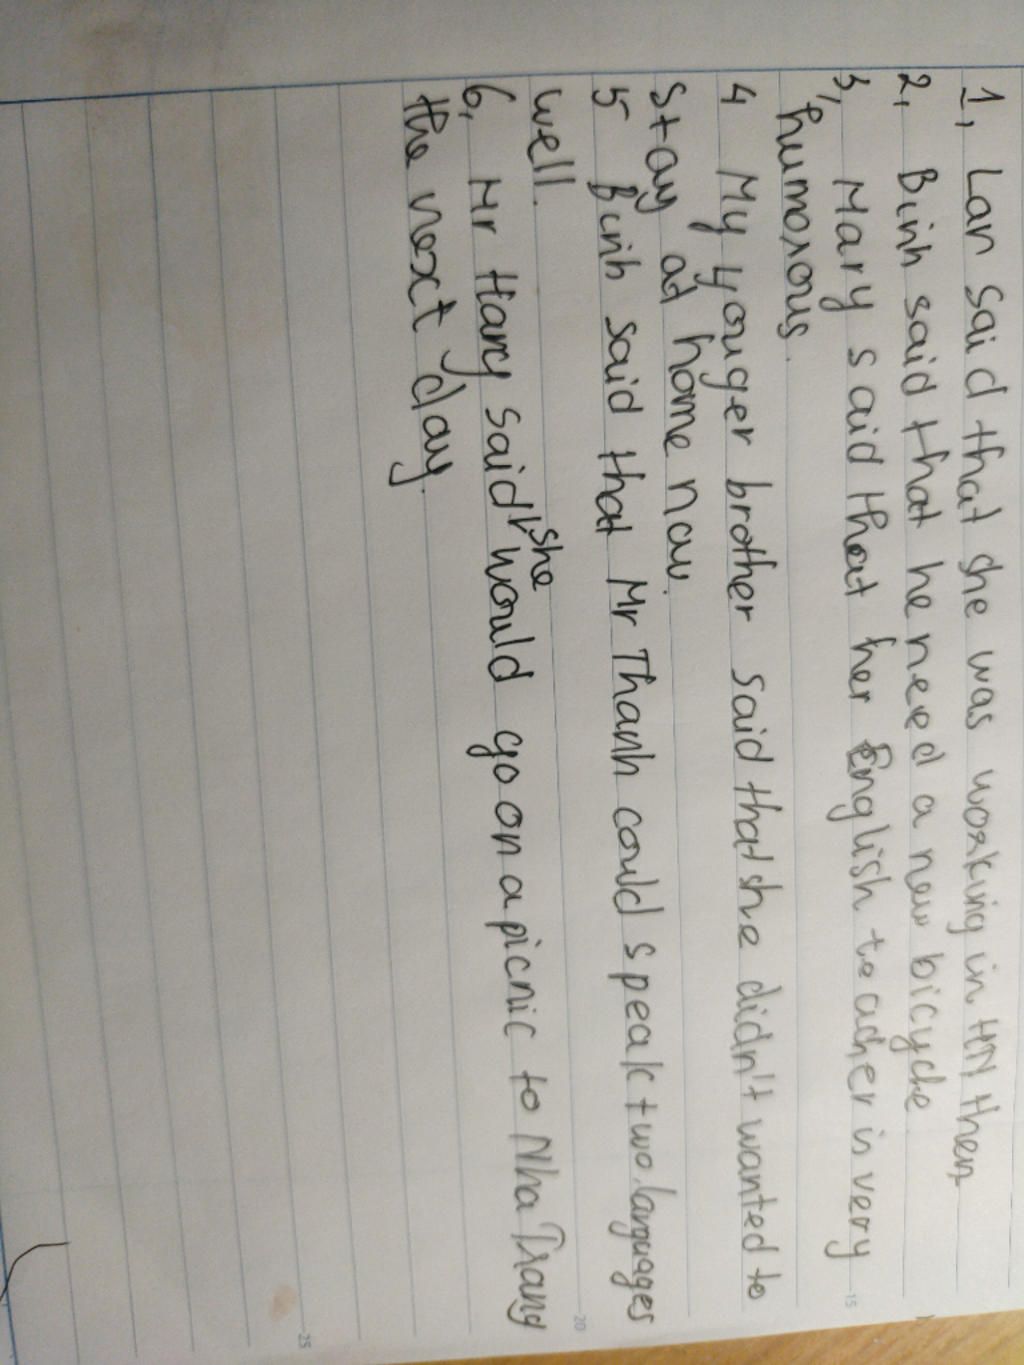 1, Lan said that she was working in HN then
2, Binh said that he need a new bicycle
3, Mary said that her English teacher is very
humorous.
4 My youger brother said that she didn't wanted to
stay at home now.
5 Binh said that Mr Thanh could speak two languages
well.
6, Mr Harry said she would go on a picnic to Nha Trang
the next day.
15
20
25